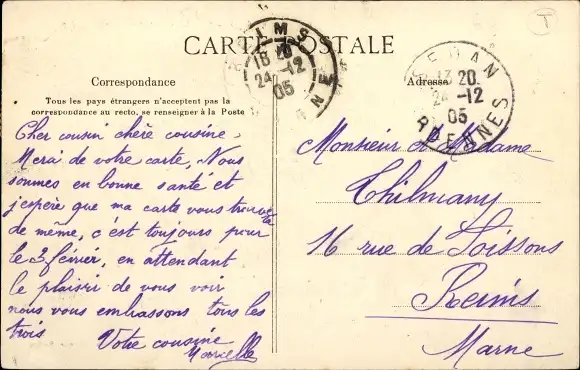 CARTE POSTALE
REIMS
18 10
24 -12
05
SEDAN
13 20
24 -12
05
ARDENNES
Correspondance
Tous les pays étrangers n'acceptent pas la
correspondance au recto, se renseigner à la Poste
Cher cousin chère cousine,
Merci de votre carte, Nous
sommes en bonne santé et
j'espère que ma carte vous trouvera
de même, c'est toujours pour
le 3 février, en attendant
le plaisir de vous voir
nous vous embrassons tous les
trois
Votre cousine
Marcelle
Adresse
Monsieur et Madame
Thilmany
16 rue de Soissons
Reims
Marne